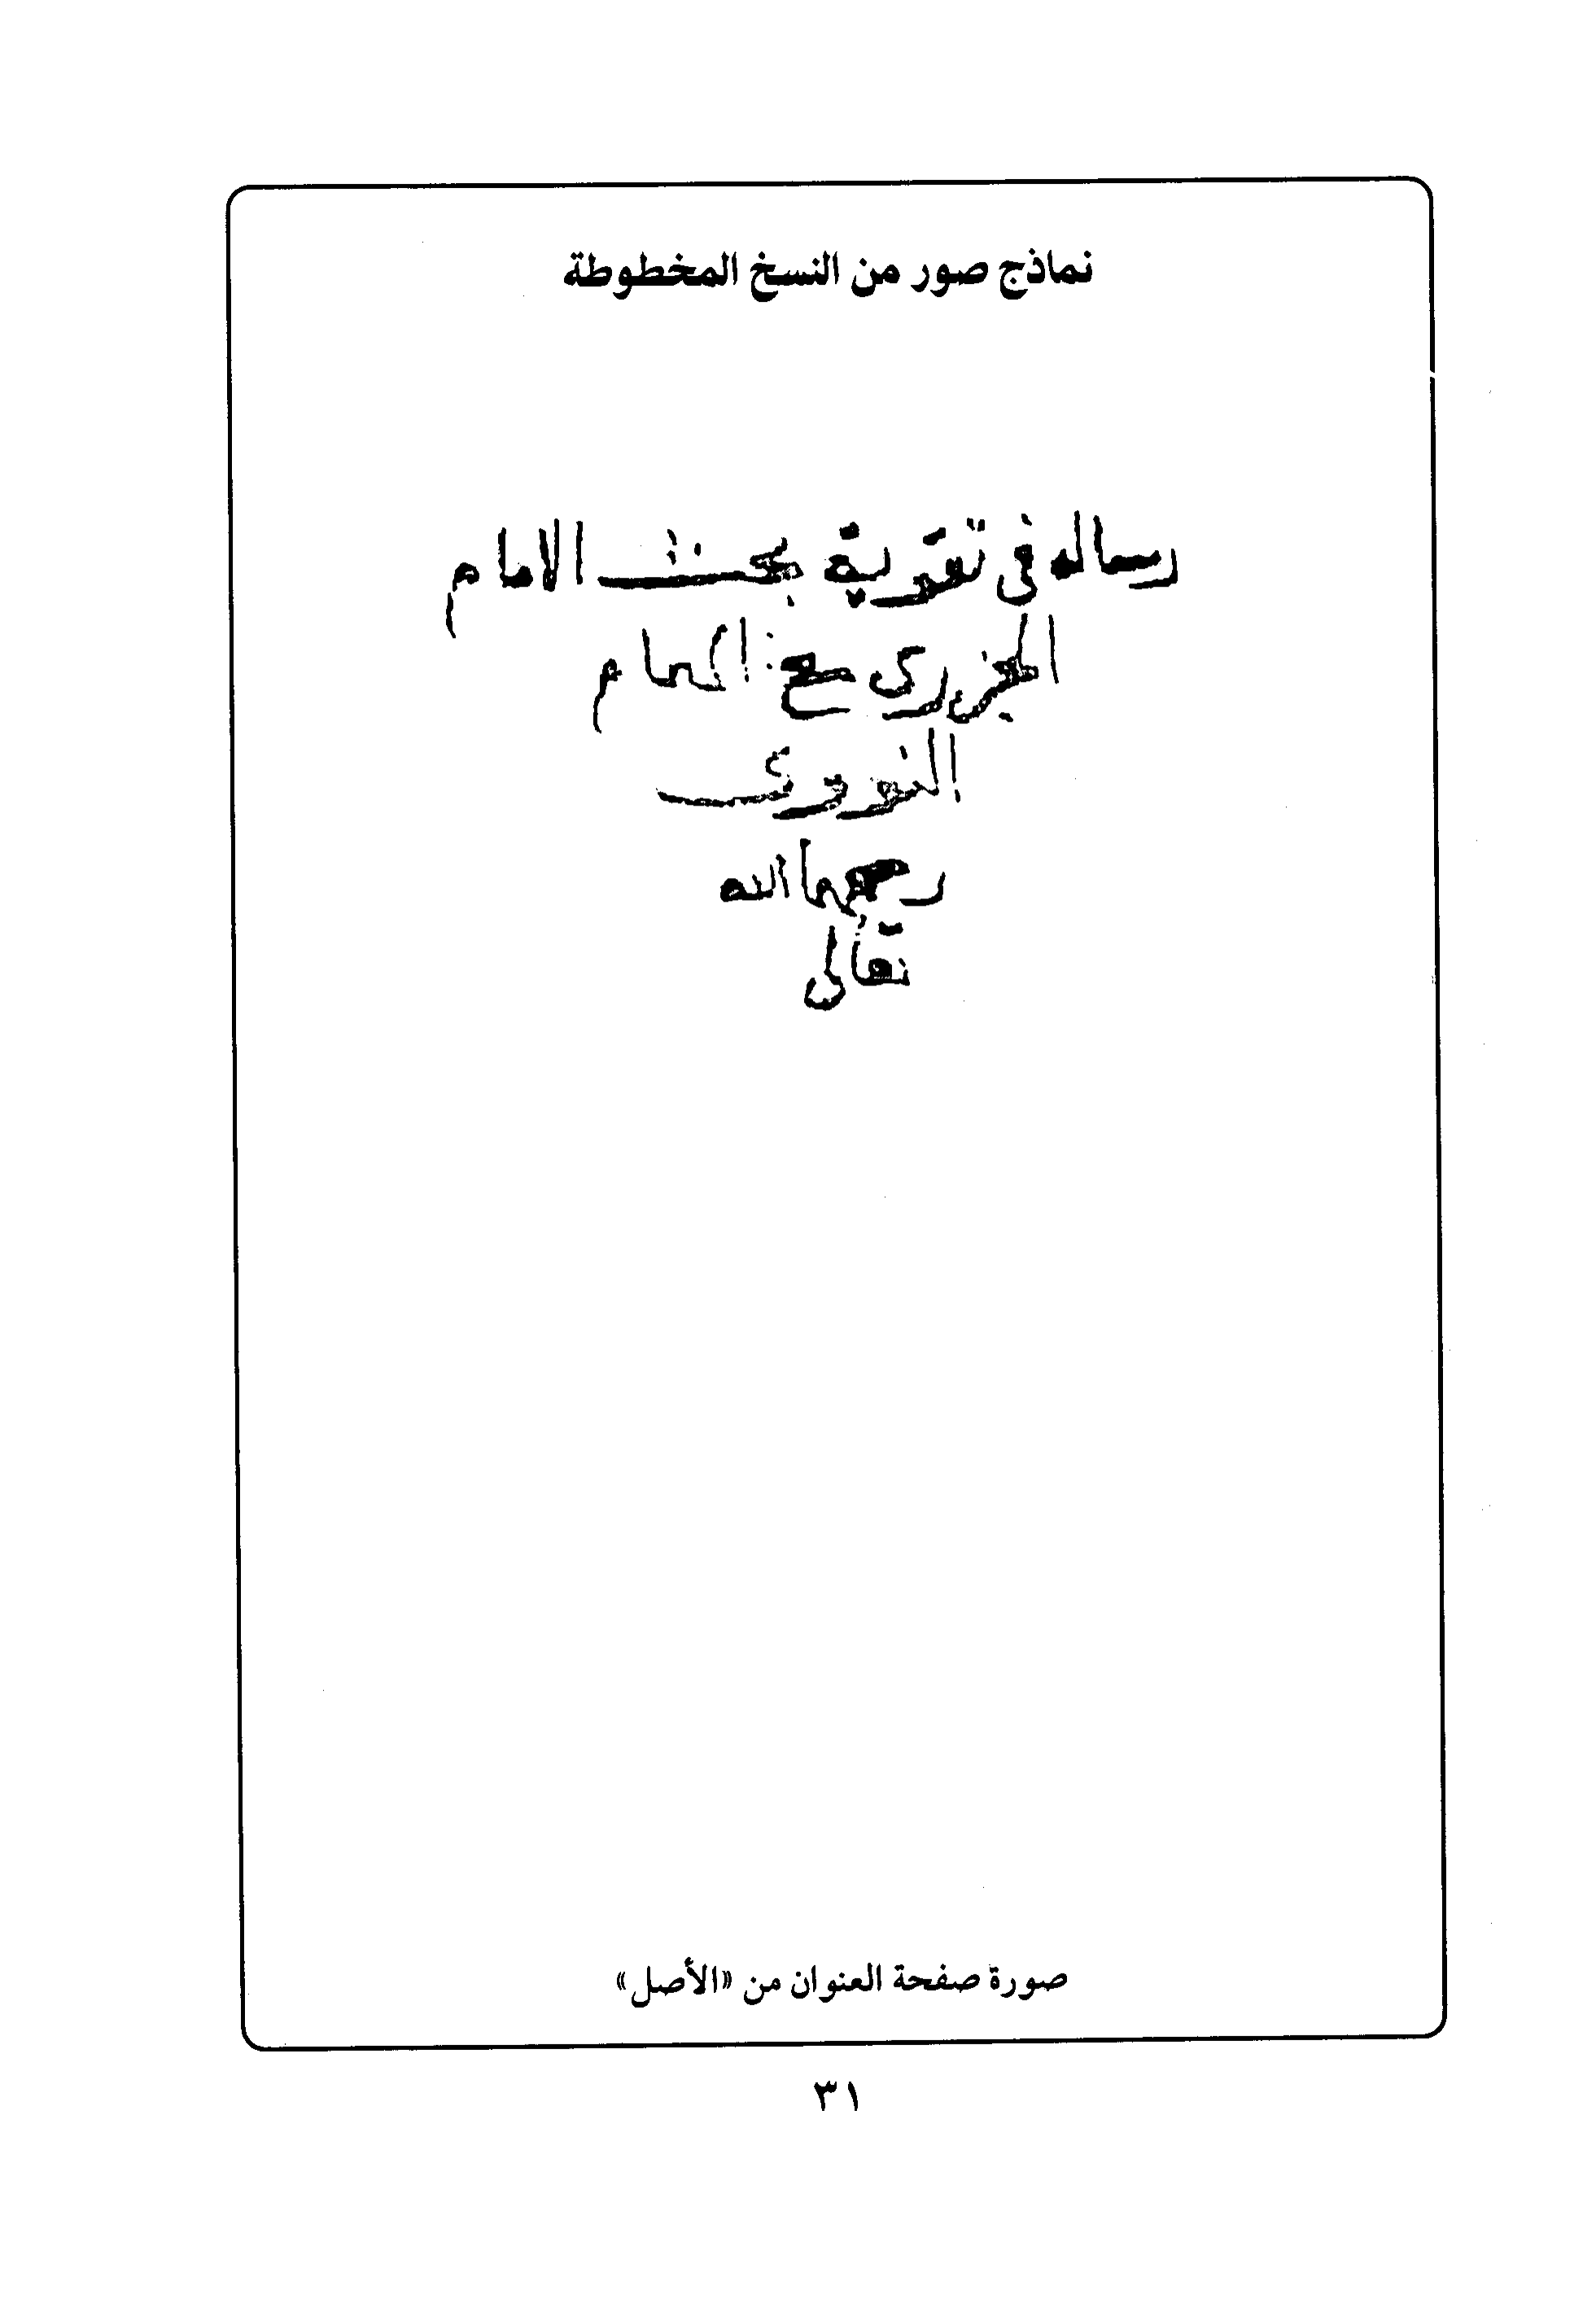 نماذج صور من النسخ المخطوطة
رساله فى تقوية بحث الامام
الجزرى مع الهمام
النووى
رحمهما الله
تعالى
صورة صفحة العنوان من «الأصل»
٣١